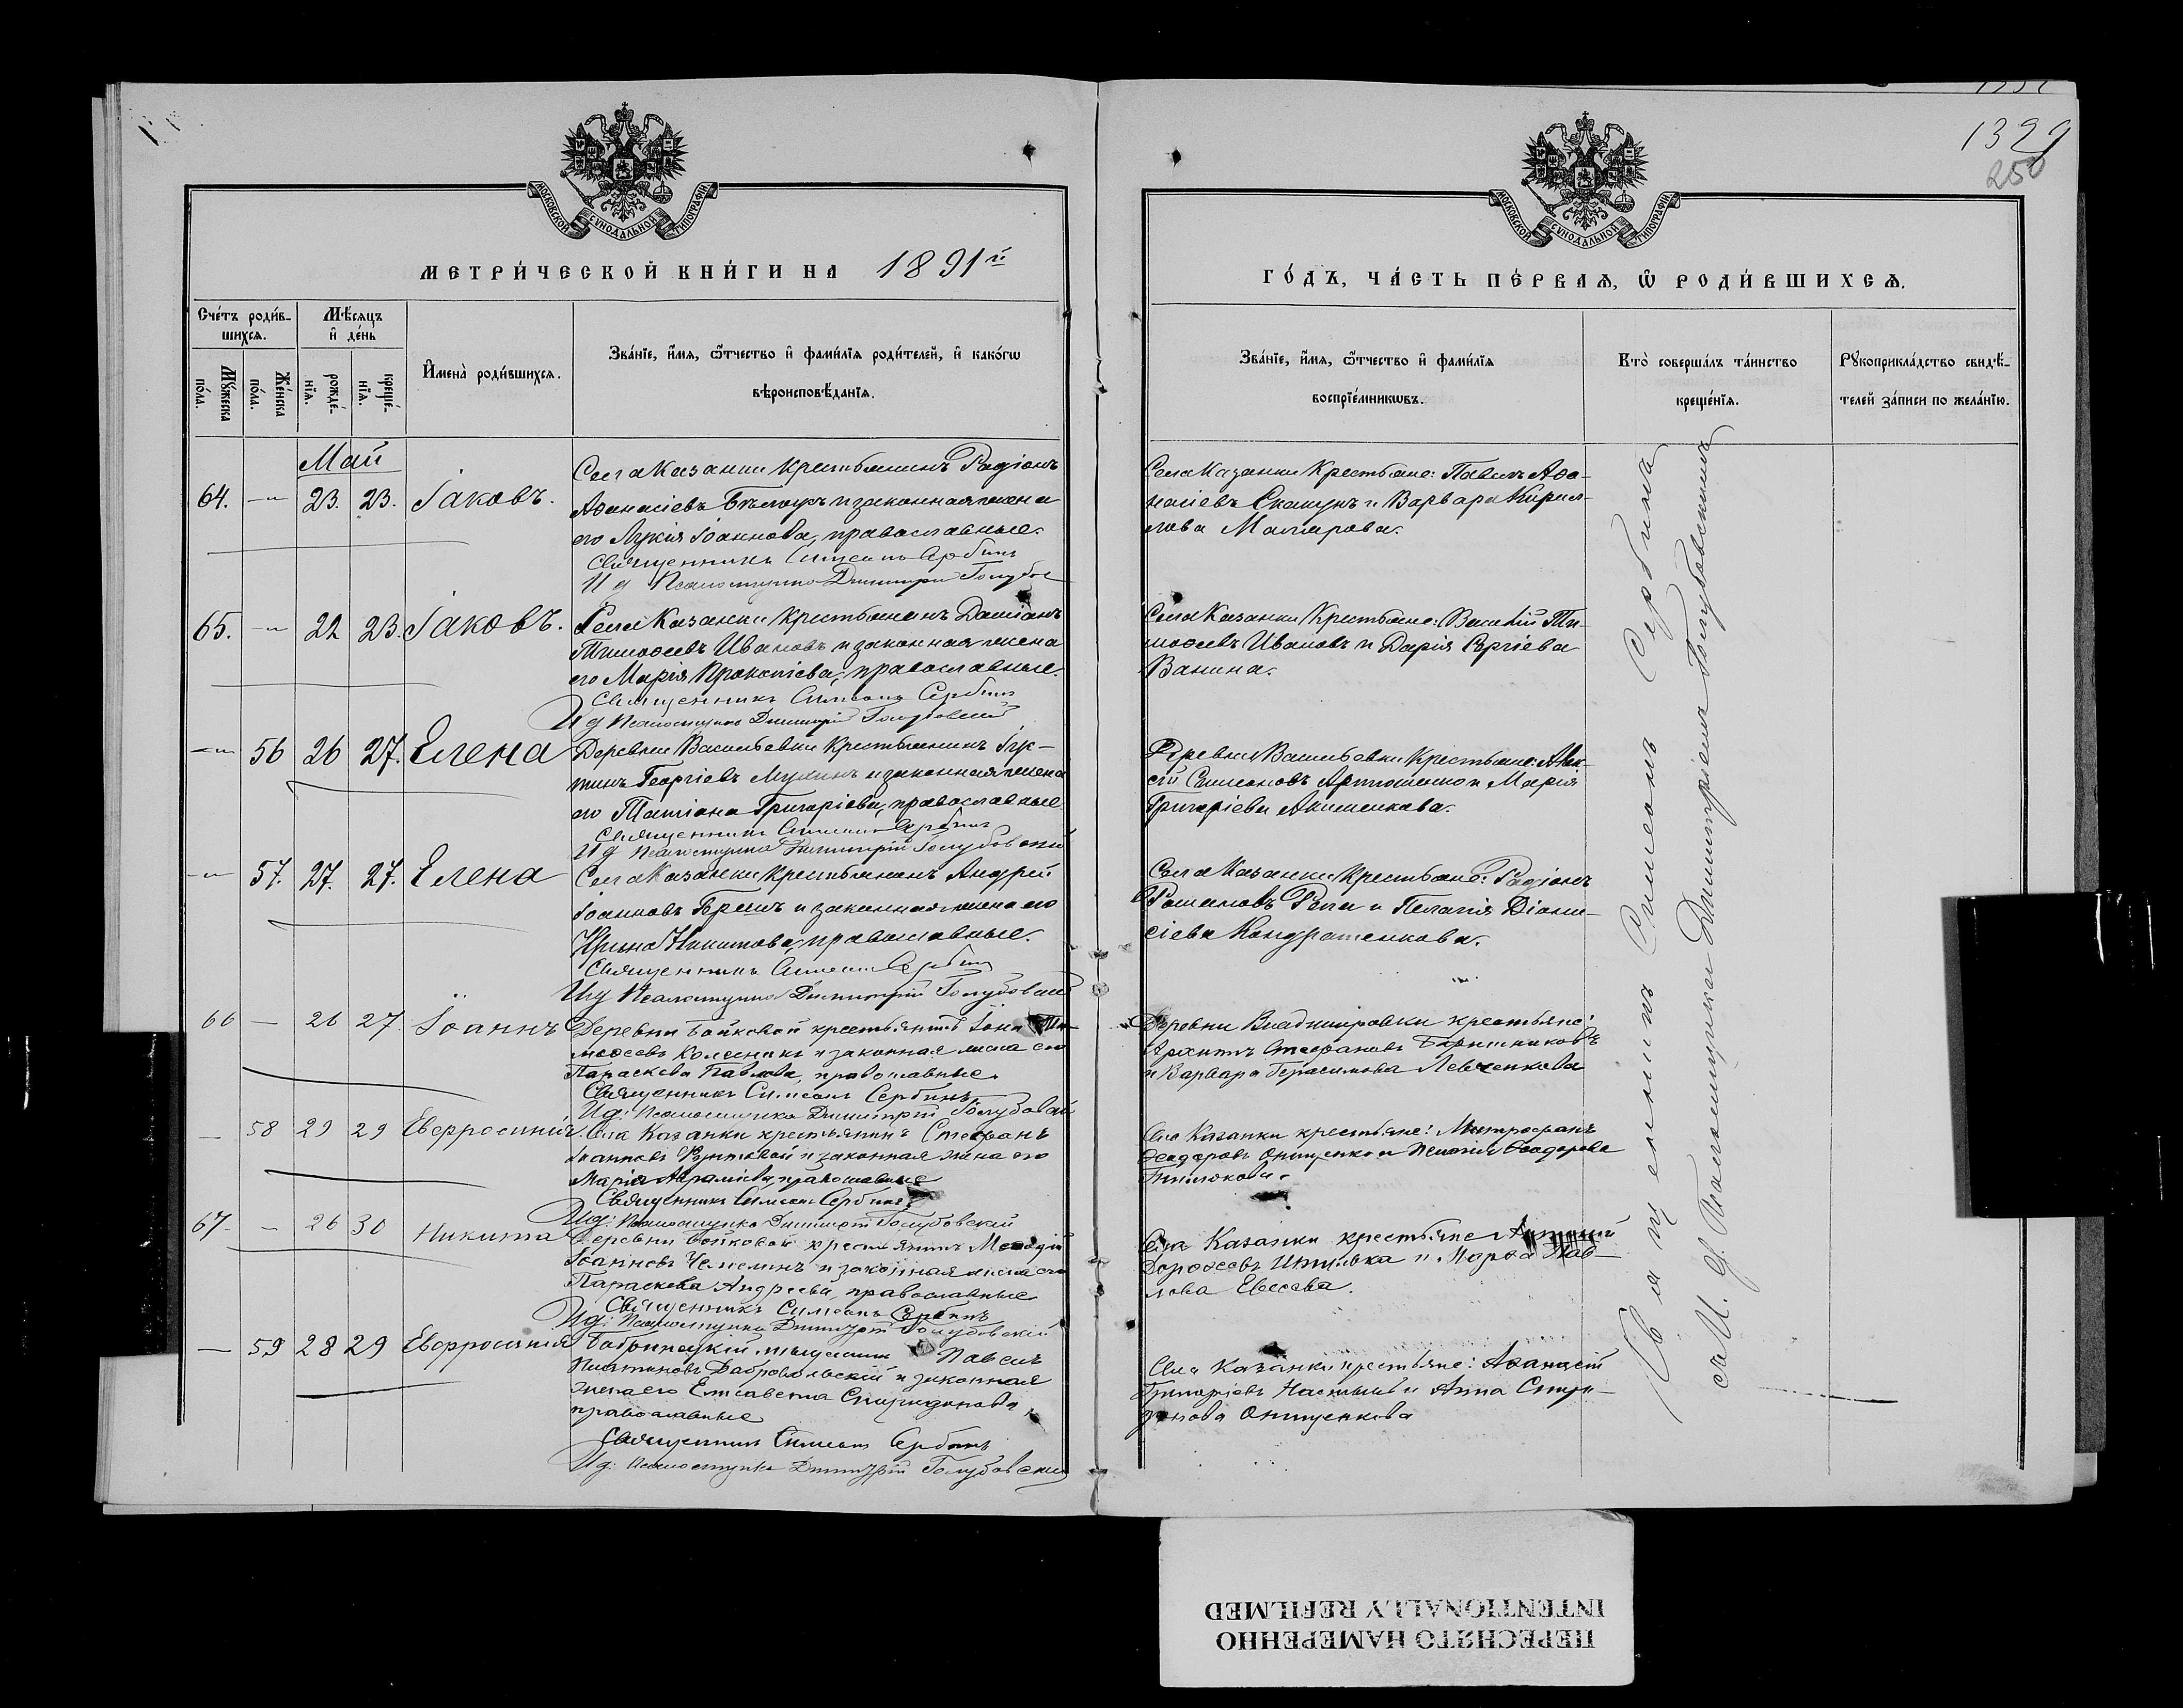 1329
250
МОСКОВСКОЙ СѴНОДАЛЬНОЙ ТИПОГРАФІИ
МОСКОВСКОЙ СѴНОДАЛЬНОЙ ТИПОГРАФІИ
МЕТРИ́ЧЕСКОЙ КНИ́ГИ НА 1891й
ГО́ДЪ, ЧА́СТЬ ПЕ́РВАѦ, Ѡ РОДИ́ВШИХСѦ.
Сче́тъ роди́в-
шихсѧ.
Мѣ́сѧцъ
и҆ де́нь
Мꙋ́жеска
по́ла.
Же́нска
по́ла.
рожде́-
нїѧ.
креще́-
нїѧ.
И҆мена̀ роди́вшихсѧ.
Зва́нїе, и҆́мѧ, ѻ҆́тчество и҆ фами́лїѧ роди́телей, и҆ како́гѡ
вѣроисповѣ́данїѧ.
Зва́нїе, и҆́мѧ, ѻ҆́тчество и҆ фами́лїѧ
воспрїе́мникѡвъ.
Кто̀ соверша́лъ та́инство
креще́нїѧ.
Рꙋкоприкла́дство свидѣ́-
телей за́писи по жела́нїю.
Май
64. — 23. 23. Іаковъ.
Села Казанки крестьянинъ Радіонъ
Аѳанасіевъ и законная жена
его Лукія Іоаннова, православные.
Священникъ Симеонъ Сербинъ
И д Псаломщика Димитрій
Села Казанки крестьяне: Павелъ Аѳа-
насіевъ Скакунъ и Варвара Кирил-
лова
65. — 22 23. Іаковъ.
Села Казанки крестьянинъ Даміанъ
Тимоѳеевъ Ивановъ и законная жена
его Марія Прокопіева, православные.
Священникъ Симеонъ Сербинъ
И д Псаломщика Димитрій Голубовскій
Села Казанки крестьяне: Василій Ти-
моѳеевъ Ивановъ и Дарія Сергіева
Ванина.
— 56 26 27. Елена
Деревни Васильевки крестьянинъ Іус-
тинъ Георгіевъ Мухинъ и законная жена
его Татіана Григоріева, православные
Священникъ Симеонъ Сербинъ
И д Псаломщика Димитрій Голубовскій
Деревни Васильевки крестьяне: Алек-
сій Симеоновъ и Марія
Григоріева Акименкова.
— 57. 27. 27. Елена
Села Казанки крестьянинъ Андрей
Іоанновъ и законная жена его
Ирина Никитова, православные.
Священникъ Симеонъ Сербинъ
И д Псаломщика Димитрій Голубовскій
Села Казанки крестьяне: Радіонъ
Романовъ Репа и Пелагія Діони-
сіева Кондратенкова.
66 — 26 27. Іоаннъ
Деревни Бойковой крестьянинъ Іона Ти-
моѳеевъ Колесникъ и законная жена его
Параскева Павлова, православные.
Священникъ Симеонъ Сербинъ
И д: Псаломщика Димитрій Голубовскій
Деревни Владимировки крестьяне:
Архипъ Стефановъ
и Варвара Герасимова Левченкова
— 58 29 29 Евфросинія.
Села Казанки крестьянинъ Стефанъ
Іоанновъ и законная жена его
Марія Аврамова, православные
Священникъ Симеонъ Сербинъ
И д: Псаломщика Димитрій Голубовскій
Села Казанки крестьяне: Митрофанъ
Ѳеодоровъ Онищенко и Ѳеодорова
67. — 26 30 Никита
Деревни Бойковой крестьянинъ Меѳодій
Іоанновъ и законная жена его
Параскева Андреева, православные
Священникъ Симеонъ Сербинъ
И д: Псаломщика Димитрій Голубовскій
Села Казанки крестьяне
Дороѳеевъ и Марѳа Пав-
лова Евсеева.
— 59 28 29 Евфросинія
Бобринецкій мещанинъ Павелъ
Добровольскій и законная
жена его Елисавета Спиридонова,
православные
Священникъ Симеонъ Сербинъ
И д: Псаломщика Димитрій Голубовскій
Села Казанки крестьяне: Аѳанасій
Григоріевъ и Анна Спири-
донова Онищенкова
Священникъ Симеонъ Сербинъ
съ И. д. Псаломщика Димитріемъ Голубовскимъ
ПЕРЕСНЯТО НАМЕРЕННО
INTENTIONALLY REFILMED